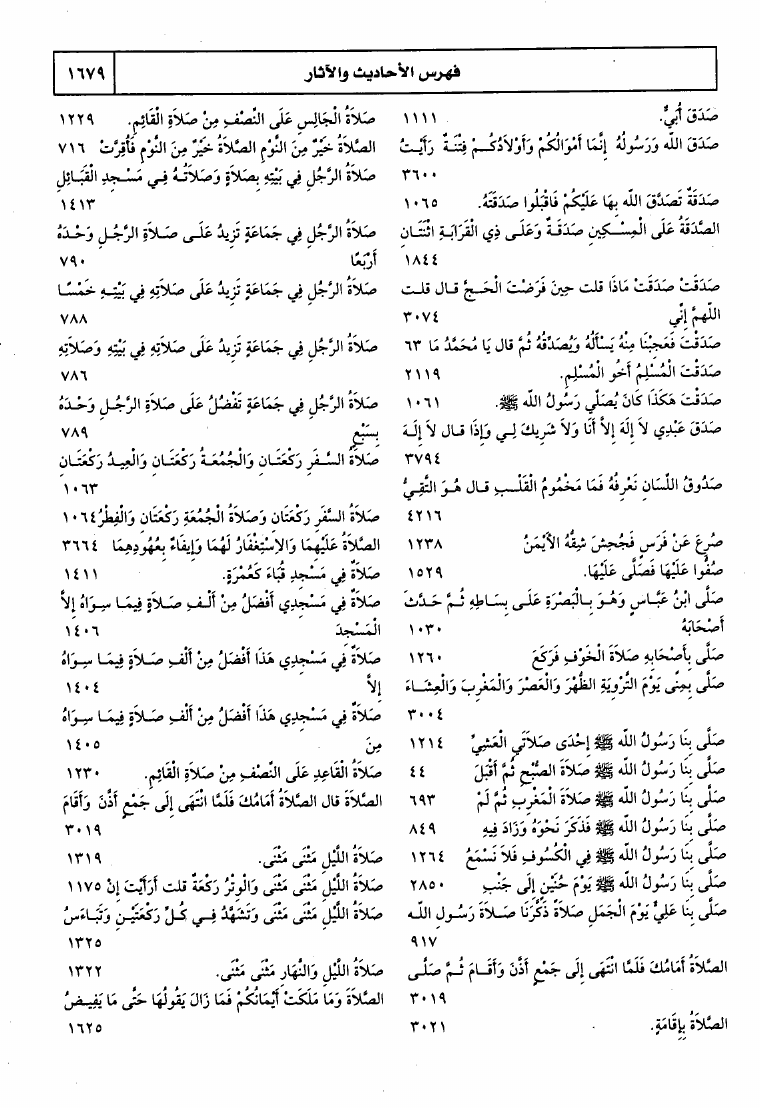 فهرس الأحاديث والآثار ١٦٧٩
صَدَقَ أُبَيٌّ. ١١١١
صَدَقَ اللَّه وَرَسُولُهُ إِنَّمَا أَمْوَالُكُمْ وَأَوْلاَدُكُمْ فِتْنَةٌ رَأَيْتُ
٣٦٠٠
صَدَقَةٌ تَصَدَّقَ اللَّه بِهَا عَلَيْكُمْ فَاقْبَلُوا صَدَقَتَهُ. ١٠٦٥
الصَّدَقَةُ عَلَى الْمِسْكِينِ صَدَقَةٌ وَعَلَى ذِي الْقَرَابَةِ اثْنَتَانِ
١٨٤٤
صَدَقَتْ صَدَقَتْ مَاذَا قلت حِينَ فَرَضْتَ الْحَجَّ قال قلت
اللَّهمَّ إِنِّي ٣٠٧٤
صَدَقْتَ فَعَجِبْنَا مِنْهُ يَسْأَلُهُ وَيُصَدِّقُهُ ثُمَّ قال يَا مُحَمَّدُ مَا ٦٣
صَدَقْتَ الْمُسْلِمُ أَخُو الْمُسْلِمِ. ٢١١٩
صَدَقْتَ هَكَذَا كَانَ يُصَلِّي رَسُولُ اللَّه ﷺ. ١٠٦١
صَدَقَ عَبْدِي لاَ إِلَهَ إِلاَّ أَنَا وَلاَ شَرِيكَ لِي وَإِذَا قال لاَ إِلَهَ
٣٧٩٤
صَدُوقُ اللِّسَانِ نَعْرِفُهُ فَمَا مَخْمُومُ الْقَلْبِ قال هُوَ التَّقِيُّ
٤٢١٦
صُرِعَ عَنْ فَرَسٍ فَجُحِشَ شِقُّهُ الأَيْمَنُ ١٢٣٨
صُفُّوا عَلَيْهَا فَصَلَّى عَلَيْهَا. ١٥٢٩
صَلَّى ابْنُ عَبَّاسٍ وَهُوَ بِالْبَصْرَةِ عَلَى بِسَاطِهِ ثُمَّ حَدَّثَ
أَصْحَابَهُ ١٠٣٠
صَلَّى بِأَصْحَابِهِ صَلاَةَ الْخَوْفِ فَرَكَعَ ١٢٦٠
صَلَّى بِمِنًى يَوْمَ التَّرْوِيَةِ الظُّهْرَ وَالْعَصْرَ وَالْمَغْرِبَ وَالْعِشَاءَ
٣٠٠٤
صَلَّى بِنَا رَسُولُ اللَّه ﷺ إِحْدَى صَلاَتَيِ الْعَشِيِّ ١٢١٤
صَلَّى بِنَا رَسُولُ اللَّه ﷺ صَلاَةَ الصُّبْحِ ثُمَّ أَقْبَلَ ٤٤
صَلَّى بِنَا رَسُولُ اللَّه ﷺ صَلاَةَ الْمَغْرِبِ ثُمَّ لَمْ ٦٩٣
صَلَّى بِنَا رَسُولُ اللَّه ﷺ فَذَكَرَ نَحْوَهُ وَزَادَ فِيهِ ٨٤٩
صَلَّى بِنَا رَسُولُ اللَّه ﷺ فِي الْكُسُوفِ فَلاَ نَسْمَعُ ١٢٦٤
صَلَّى بِنَا رَسُولُ اللَّه ﷺ يَوْمَ حُنَيْنٍ إِلَى جَنْبِ ٢٨٥٠
صَلَّى بِنَا عَلِيٌّ يَوْمَ الْجَمَلِ صَلاَةً ذَكَّرَنَا صَلاَةَ رَسُولِ اللَّه
٩١٧
الصَّلاَةُ أَمَامَكَ فَلَمَّا انْتَهَى إِلَى جَمْعٍ أَذَّنَ وَأَقَامَ ثُمَّ صَلَّى
٣٠١٩
الصَّلاَةُ بِإِقَامَةٍ. ٣٠٢١
صَلاَةُ الْجَالِسِ عَلَى النِّصْفِ مِنْ صَلاَةِ الْقَائِمِ. ١٢٢٩
الصَّلاَةُ خَيْرٌ مِنَ النَّوْمِ الصَّلاَةُ خَيْرٌ مِنَ النَّوْمِ فَأُقِرَّتْ ٧١٦
صَلاَةُ الرَّجُلِ فِي بَيْتِهِ بِصَلاَةٍ وَصَلاَتُهُ فِي مَسْجِدِ الْقَبَائِلِ
١٤١٣
صَلاَةُ الرَّجُلِ فِي جَمَاعَةٍ تَزِيدُ عَلَى صَلاَةِ الرَّجُلِ وَحْدَهُ
أَرْبَعًا ٧٩٠
صَلاَةُ الرَّجُلِ فِي جَمَاعَةٍ تَزِيدُ عَلَى صَلاَتِهِ فِي بَيْتِهِ خَمْسًا
٧٨٨
صَلاَةُ الرَّجُلِ فِي جَمَاعَةٍ تَزِيدُ عَلَى صَلاَتِهِ فِي بَيْتِهِ وَصَلاَتِهِ
٧٨٦
صَلاَةُ الرَّجُلِ فِي جَمَاعَةٍ تَفْضُلُ عَلَى صَلاَةِ الرَّجُلِ وَحْدَهُ
بِسَبْعٍ ٧٨٩
صَلاَةُ السَّفَرِ رَكْعَتَانِ وَالْجُمُعَةُ رَكْعَتَانِ وَالْعِيدُ رَكْعَتَانِ
١٠٦٣
صَلاَةُ السَّفَرِ رَكْعَتَانِ وَصَلاَةُ الْجُمُعَةِ رَكْعَتَانِ وَالْفِطْرُ ١٠٦٤
الصَّلاَةُ عَلَيْهِمَا وَالاِسْتِغْفَارُ لَهُمَا وَإِيفَاءٌ بِعُهُودِهِمَا ٣٦٦٤
صَلاَةٌ فِي مَسْجِدِ قُبَاءَ كَعُمْرَةٍ. ١٤١١
صَلاَةٌ فِي مَسْجِدِي أَفْضَلُ مِنْ أَلْفِ صَلاَةٍ فِيمَا سِوَاهُ إِلاَّ
الْمَسْجِدَ ١٤٠٦
صَلاَةٌ فِي مَسْجِدِي هَذَا أَفْضَلُ مِنْ أَلْفِ صَلاَةٍ فِيمَا سِوَاهُ
إِلاَّ ١٤٠٤
صَلاَةٌ فِي مَسْجِدِي هَذَا أَفْضَلُ مِنْ أَلْفِ صَلاَةٍ فِيمَا سِوَاهُ
مِنَ ١٤٠٥
صَلاَةُ الْقَاعِدِ عَلَى النِّصْفِ مِنْ صَلاَةِ الْقَائِمِ. ١٢٣٠
الصَّلاَةَ قال الصَّلاَةُ أَمَامَكَ فَلَمَّا انْتَهَى إِلَى جَمْعٍ أَذَّنَ وَأَقَامَ
٣٠١٩
صَلاَةُ اللَّيْلِ مَثْنَى مَثْنَى. ١٣١٩
صَلاَةُ اللَّيْلِ مَثْنَى مَثْنَى وَالْوِتْرُ رَكْعَةٌ قلت أَرَأَيْتَ إِنْ ١١٧٥
صَلاَةُ اللَّيْلِ مَثْنَى مَثْنَى وَتَشَهَّدُ فِي كُلِّ رَكْعَتَيْنِ وَتَبَاءَسُ
١٣٢٥
صَلاَةُ اللَّيْلِ وَالنَّهَارِ مَثْنَى مَثْنَى. ١٣٢٢
الصَّلاَةَ وَمَا مَلَكَتْ أَيْمَانُكُمْ فَمَا زَالَ يَقُولُهَا حَتَّى مَا يَفِيضُ
١٦٢٥